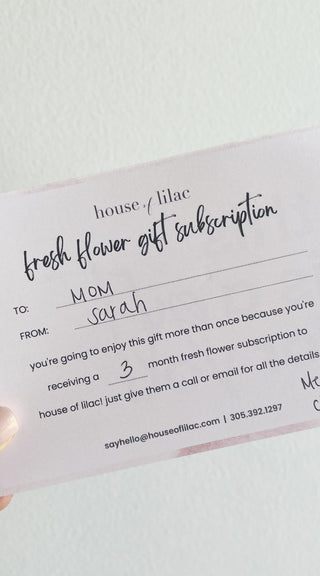 house of lilac
fresh flower gift subscription
TO: MOM
FROM: Sarah
you're going to enjoy this gift more than once because you're
receiving a 3 month fresh flower subscription to
house of lilac! just give them a call or email for all the details
sayhello@houseoflilac.com | 305.392.1297